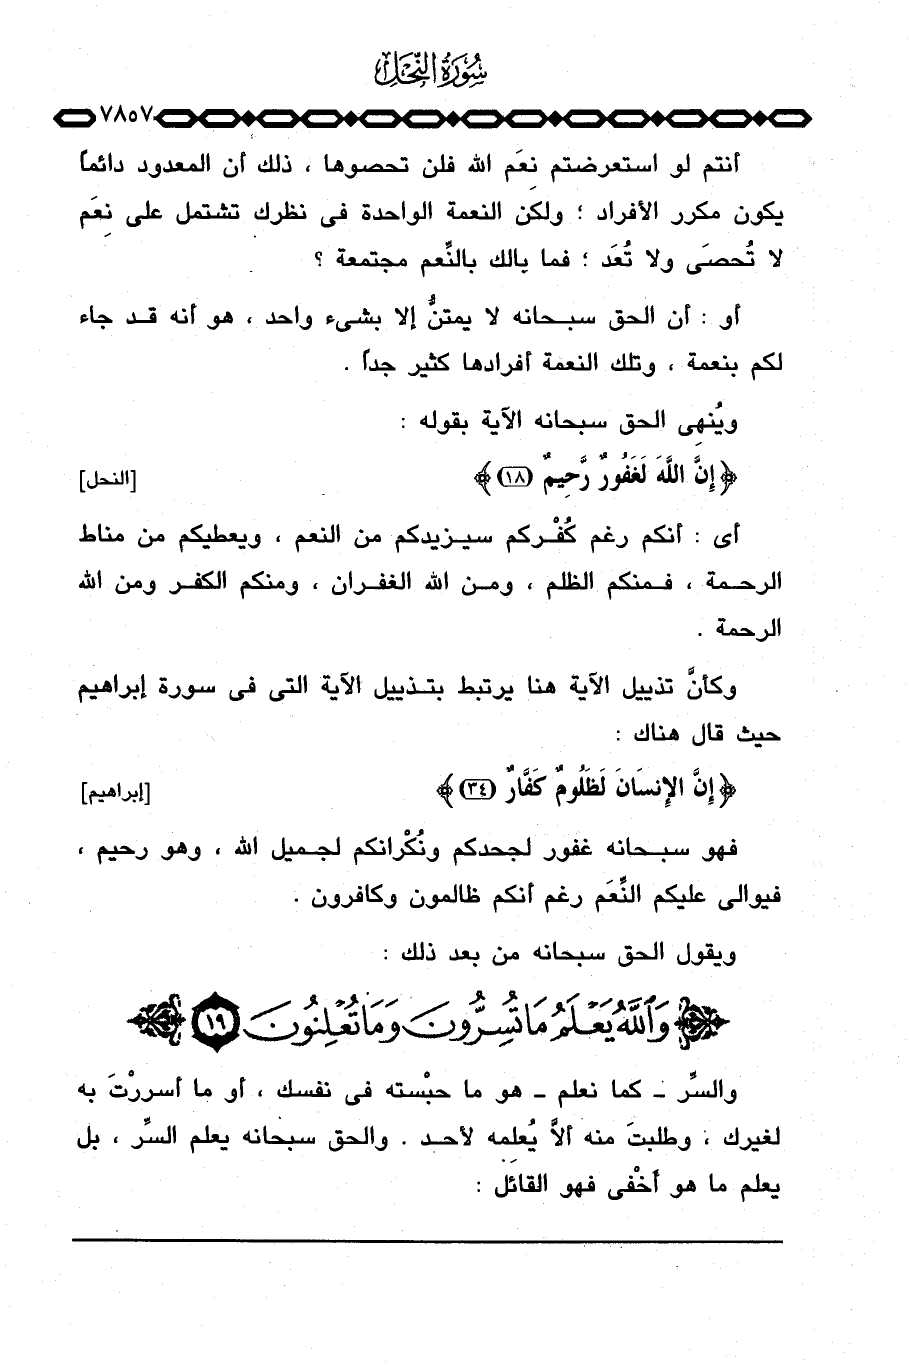 سُورَةُ النَّحْلِ
٧٨٥٧
أنتم لو استعرضتم نِعَم الله فلن تحصوها ، ذلك أن المعدود دائماً
يكون مكرر الأفراد ؛ ولكن النعمة الواحدة فى نظرك تشتمل على نِعَم
لا تُحصَى ولا تُعَد ؛ فما بالك بالنِّعم مجتمعة ؟
أو : أن الحق سبحانه لا يمتنُّ إلا بشىء واحد ، هو أنه قد جاء
لكم بنعمة ، وتلك النعمة أفرادها كثير جداً .
ويُنهِى الحق سبحانه الآية بقوله :
﴿ إِنَّ اللَّهَ لَغَفُورٌ رَّحِيمٌ (١٨) ﴾ [النحل]
أى : أنكم رغم كُفْركم سيزيدكم من النعم ، ويعطيكم من مناط
الرحمة ، فمنكم الظلم ، ومن الله الغفران ، ومنكم الكفر ومن الله
الرحمة .
وكأنَّ تذييل الآية هنا يرتبط بتذييل الآية التى فى سورة إبراهيم
حيث قال هناك :
﴿ إِنَّ الإِنسَانَ لَظَلُومٌ كَفَّارٌ (٣٤) ﴾ [إبراهيم]
فهو سبحانه غفور لجحدكم ونُكْرانكم لجميل الله ، وهو رحيم ،
فيوالى عليكم النِّعَم رغم أنكم ظالمون وكافرون .
ويقول الحق سبحانه من بعد ذلك :
﴿ وَٱللَّهُ يَعْلَمُ مَا تُسِرُّونَ وَمَا تُعْلِنُونَ ١٩ ﴾
والسِّر ـ كما نعلم ـ هو ما حبْسته فى نفسك ، أو ما أسررْتَ به
لغيرك ، وطلبتَ منه ألاَّ يُعلمه لأحد . والحق سبحانه يعلم السِّر ، بل
يعلم ما هو أَخْفى فهو القائل :